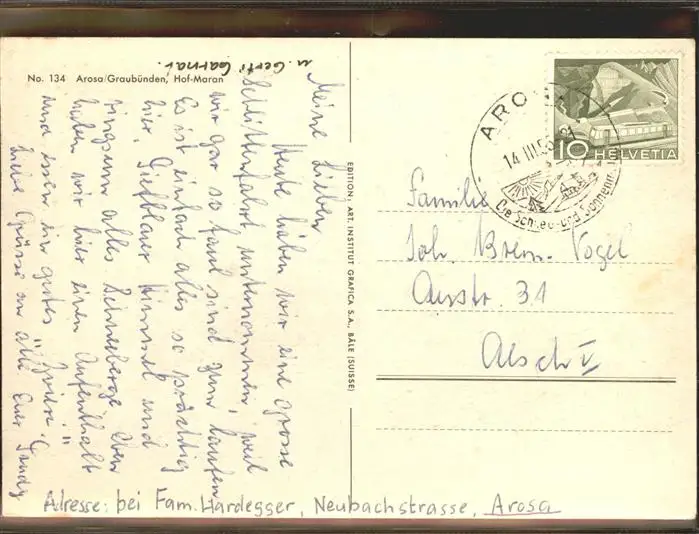 No. 134   Arosa/Graubünden, Hof-Maran
u. Gerti
Meine Lieben
Heute haben wir eine grosse
Schlittenfahrt unternommen, weil
wir gar so faul sind zum laufen
Es ist einfach alles so prächtig
hier. Tiefblauer Himmel und
ringsum alles Schneeberge. Eben
haben wir hier einen Aufenthalt
und essen ein gutes "Zvieri".
Liebe Grüsse an alle Euer
Adresse: bei Fam. Hardegger, Neubachstrasse, Arosa
EDITION, ART. INSTITUT GRAFICA S.A., BÂLE (SUISSE)
10 HELVETIA
AROSA
14.III.55
Die Schnee- und Sonnen
Familie
Joh. Brem-Vogel
Austr. 31
Aesch